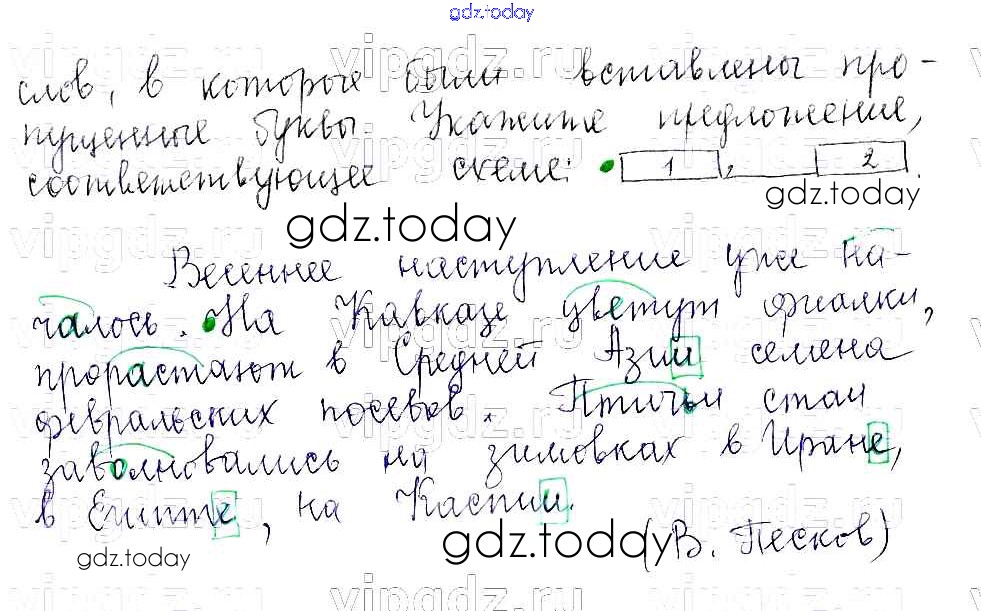 gdz.today
слов, в которые были вставлены про-
пущенные буквы. Укажите предложение,
соответствующее схеме: • 1 , 2 .
gdz.today
gdz.today
Весеннее наступление уже на-
чалось. • На Кавказе цветут фиалки,
прорастают в Средней Азии семена
февральских посевов. Птичьи стаи
заволновались на зимовках в Иране,
в Египте, на Каспии.
(В. Песков)
gdz.today
gdz.today
vipgdz.ru